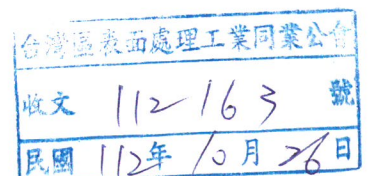 台灣區表面處理工業同業公會
收文 112-163 號
民國 112年 10月 26日